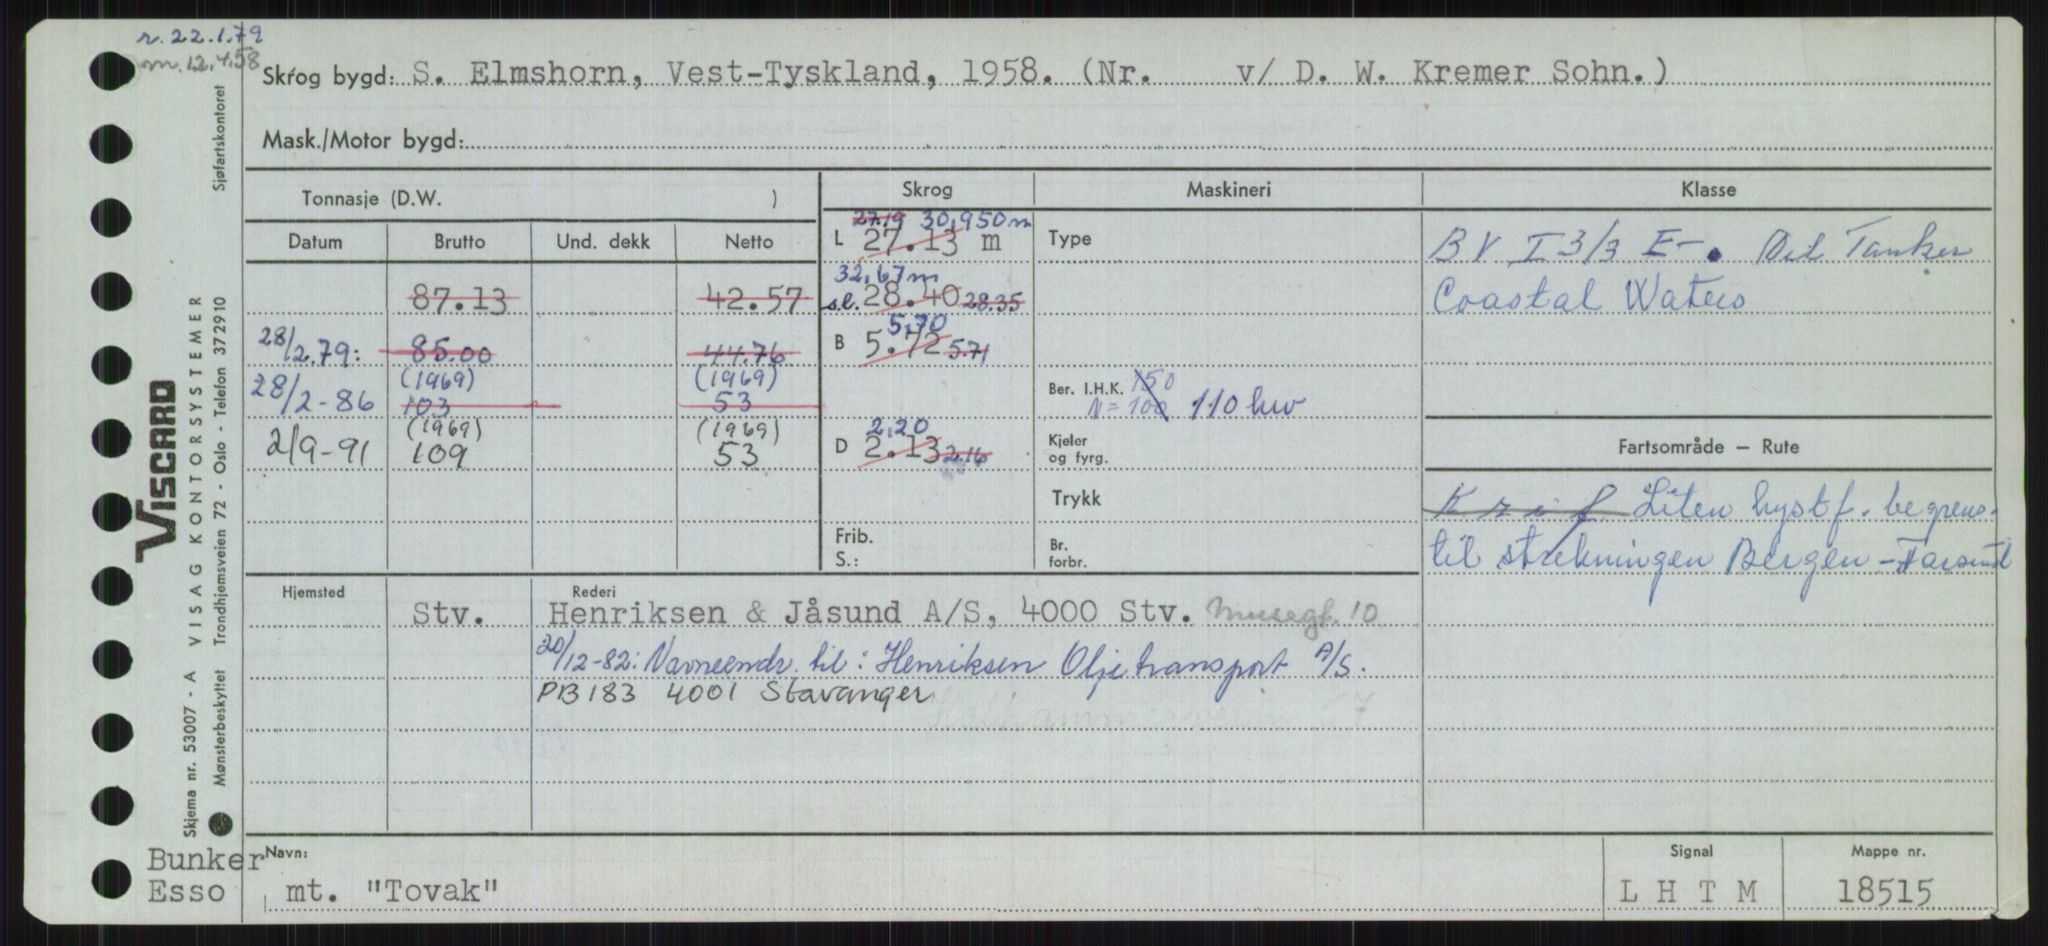 r. 22.1.79
m. 12.4.58
Skrog bygd: S. Elmshorn, Vest-Tyskland, 1958. (Nr. v/ D. W. Kremer Sohn.)
Mask./Motor bygd:
Tonnasje (D.W. )
Skrog
Maskineri
Klasse
Datum Brutto Und. dekk Netto
87.13 42.57
28/2.79: 85.00 44.76
(1969) (1969)
28/2-86 103 53
(1969) (1969)
2/9-91 109 53
27.19 30,950 m
L 27.13 m
32,67 m
s.l. 28.40 28.35
5,70
B 5.72 5.71
2,20
D 2.13 2.16
Frib.
S.:
Type
Ber. I.H.K. 150
N=100 110 kw
Kjeler
og fyrg.
Trykk
Br.
forbr.
BV I 3/3 E-. Oil Tanker
Coastal Waters
Fartsområde — Rute
Krif. Liten kystf. begrens.
til strekningen Bergen-Farsund
Hjemsted
Stv.
Rederi
Henriksen & Jåsund A/S, 4000 Stv. Musegt. 10
20/12-82: Navneendr. til: Henriksen Oljetransport A/S.
PB 183 4001 Stavanger
Bunker
Esso
Navn:
mt. "Tovak"
Signal
L H T M
Mappe nr.
18515
VISCARD
Skjema nr. 53007 - A VISAG KONTORSYSTEMER
Mønsterbeskyttet Trondhjemsveien 72 - Oslo - Telefon 372910 Sjøfartskontoret